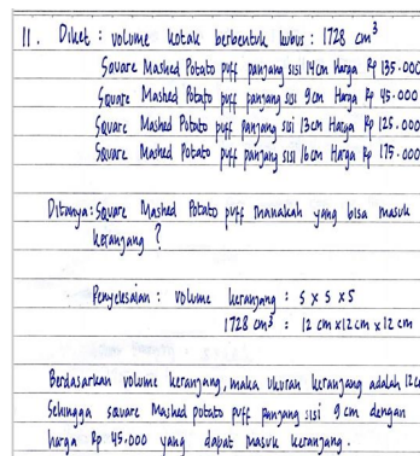 11. Diket : volume kotak berbentuk kubus : 1728 cm³
Square Mashed Potato puff panjang sisi 14 cm Harga Rp 135.000
Square Mashed Potato puff panjang sisi 9 cm Harga Rp 45.000
Square Mashed Potato puff panjang sisi 13 cm Harga Rp 125.000
Square Mashed Potato puff panjang sisi 16 cm Harga Rp 175.000
Ditanya : Square Mashed Potato puff manakah yang bisa masuk
keranjang ?
Penyelesaian : volume keranjang : s x s x s
1728 cm³ : 12 cm x 12 cm x 12 cm
Berdasarkan volume keranjang, maka ukuran keranjang adalah 12 c
Sehingga square Mashed potato puff panjang sisi 9 cm dengan
harga Rp 45.000 yang dapat masuk keranjang.